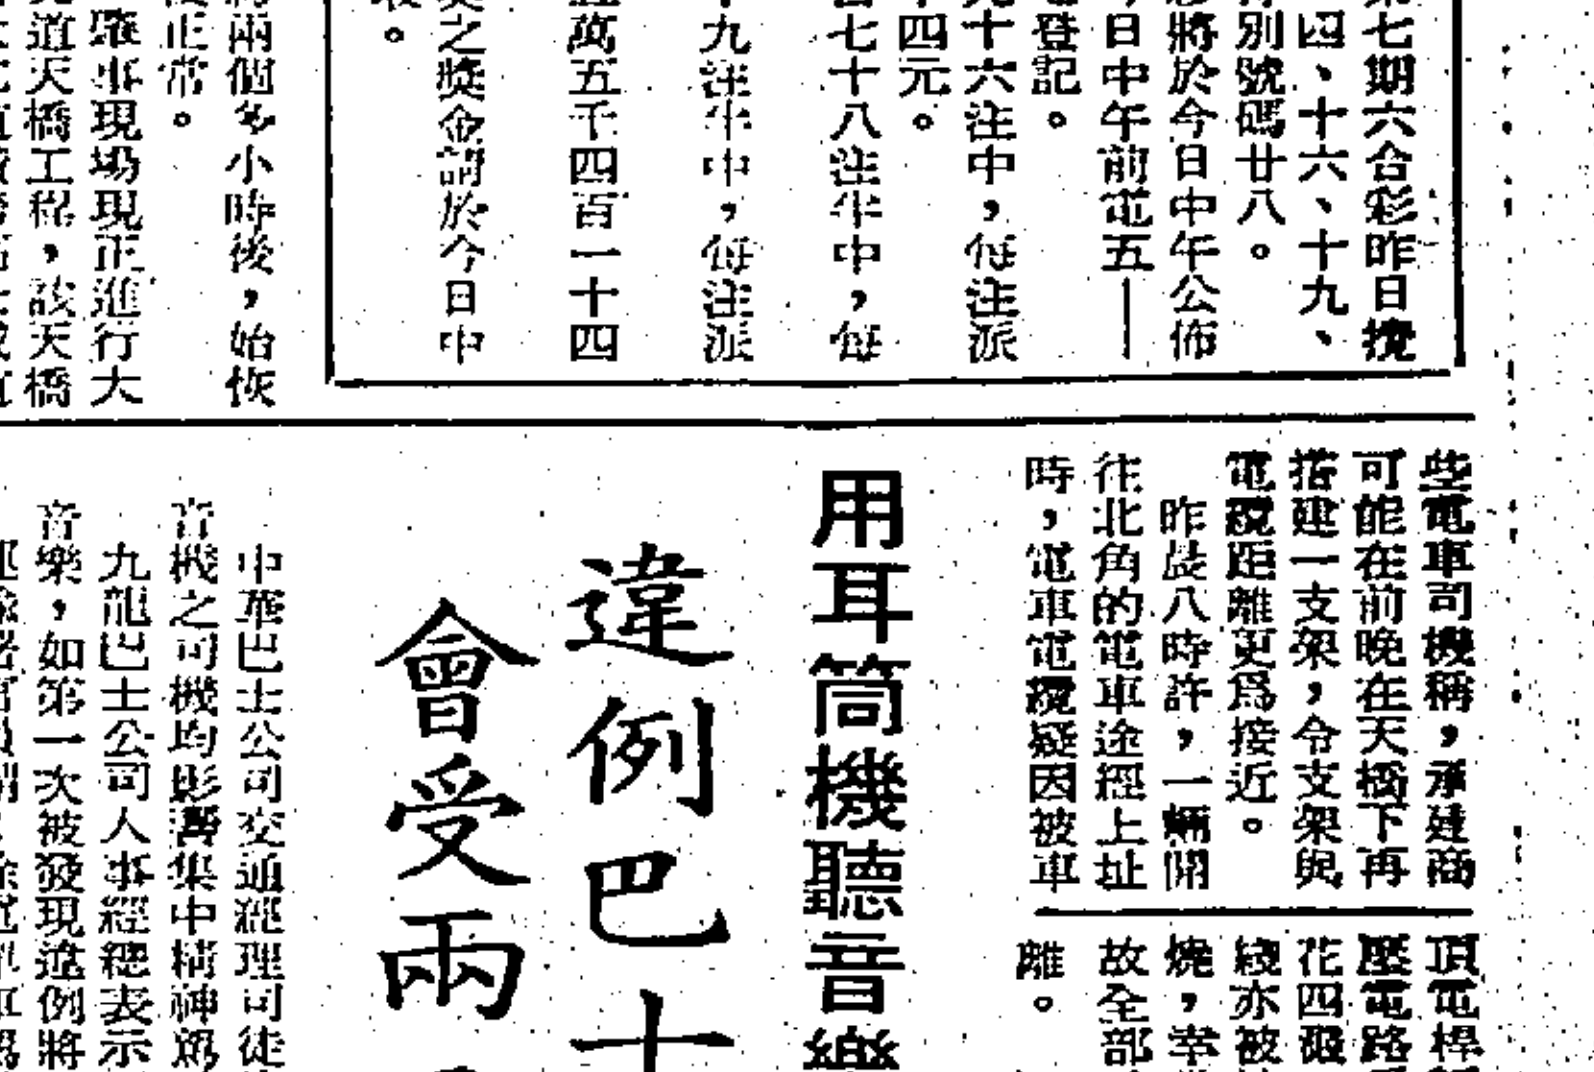 第七期六合彩昨日攪
四、十六、十九、
特別號碼廿八。
彩將於今日中午公佈
今日中午前電五——
登記。
九十六注中，每注派
十四元。
百七十八注半中，每
十九注半中，每注派
五萬五千四百一十四
獎之獎金請於今日中
取。
兩個多小時後，始恢
復正常。
肇事現場現正進行大
道天橋工程，該天橋
些電車司機稱，承建商
可能在前晚在天橋下再
搭建一支架，令支架與
電纜距離更爲接近。
昨晨八時許，一輛開
往北角的電車途經上址
時，電車電纜疑因被車
頂電桿
壓電路
花四濺
綫亦被
燒，幸
故全部
離。
用耳筒機聽音樂
違例巴士
會受兩
中華巴士公司交通經理司徒
音機之司機均影響集中精神駕
九龍巴士公司人事經總表示
音樂，如第一次被發現違例將